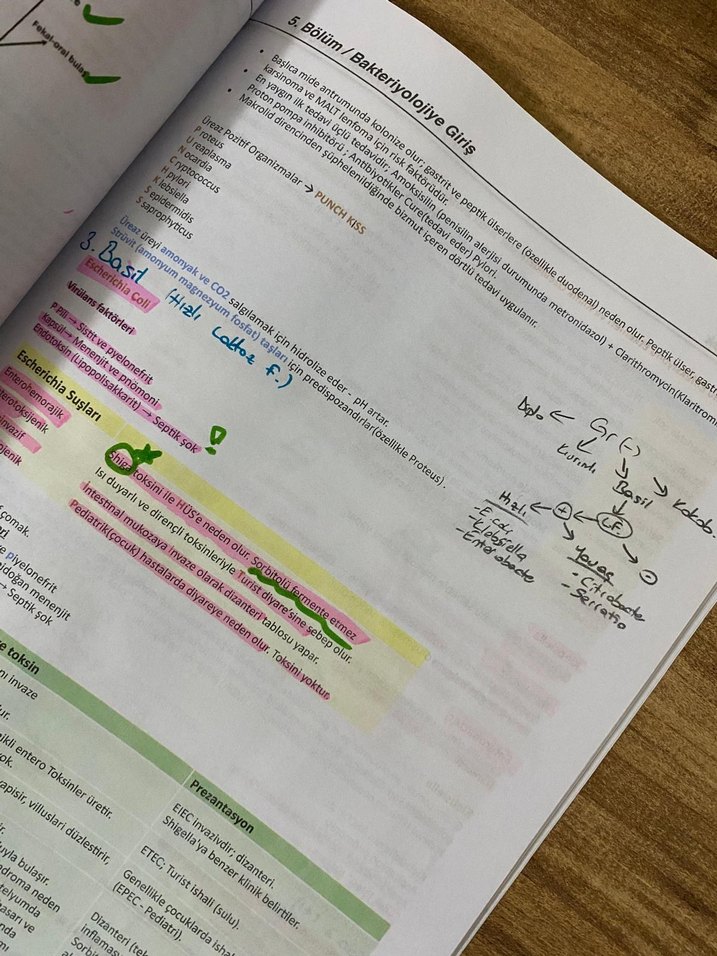 Fekal-oral bulaş
5. Bölüm / Bakteriyolojiye Giriş
• Başlıca mide antrumunda kolonize olur; gastrit ve peptik ülserlere (özellikle duodenal) neden olur. Peptik ülser, gastrik
karsinoma ve MALT lenfoma için risk faktörüdür.
• En yaygın ilk tedavi üçlü tedavidir, Amoksisilin (penisilin alerjisi durumunda metronidazol) + Clarithromycin(Klaritrom
Proton pompa inhibitörü ; Antibiyotikler Cure(tedavi eder) Pylori.
• Makrolid direncinden şüphelenildiğinde bizmut içeren dörtlü tedavi uygulanır.
Üreaz Pozitif Organizmalar → PUNCH KISS
P roteus
U reaplasma
N ocardia
C ryptococcus
H pylori
K lebsiella
S epidermidis
S saprophyticus
Üreaz üreyi amonyak ve CO2 salgılamak için hidrolize eder - pH artar.
Strüvit (amonyum magnezyum fosfat) taşları için predispozandırlar(özellikle Proteus) .
3. Basil (Hızlı Laktoz f.)
Escherichia Coli
Virülans faktörleri
P Pili → Sistit ve pyelonefrit
Kapsül → Menenjit ve pnömoni
Endotoksin (Lipopolisakkarit) → Septik şok
Gr(-)
Diplo
Basil
Kokob.
LF
+
-
Hızlı
- E. coli
- Klebsiella
- Enterobacte
Yavaş
- Citrobacte
- Serratia
Escherichia Suşları
Enterohemorajik
Shiga toksini ile HÜS'e neden olur. Sorbitolü fermente etmez.
terotoksijenik
Isı duyarlı ve dirençli toksinleriyle Turist diyare'sine sebep olur.
invazif
İntestinal mukozaya invaze olarak dizanteri tablosu yapar.
ojenik
Pediatrik(çocuk) hastalarda diyareye neden olur. Toksini yoktur.
çomak.
piyelonefrit
idoğan menenjit
→ Septik şok
e toksin
Prezantasyon
nı invaze
ur.
EIEC invazivdir; dizanteri.
Shigella'ya benzer klinik belirtiler.
ikli entero Toksinler üretir.
ok.
ETEC; Turist ishali (sulu).
yapisir, villuslari düzlestirir,
Genellikle çocuklarda isha
(EPEC - Pediatri).
uyla bulaşır.
adroma neden
telyumda
asarı ve
nda
Dizanteri (te
inflamas
Sorbit